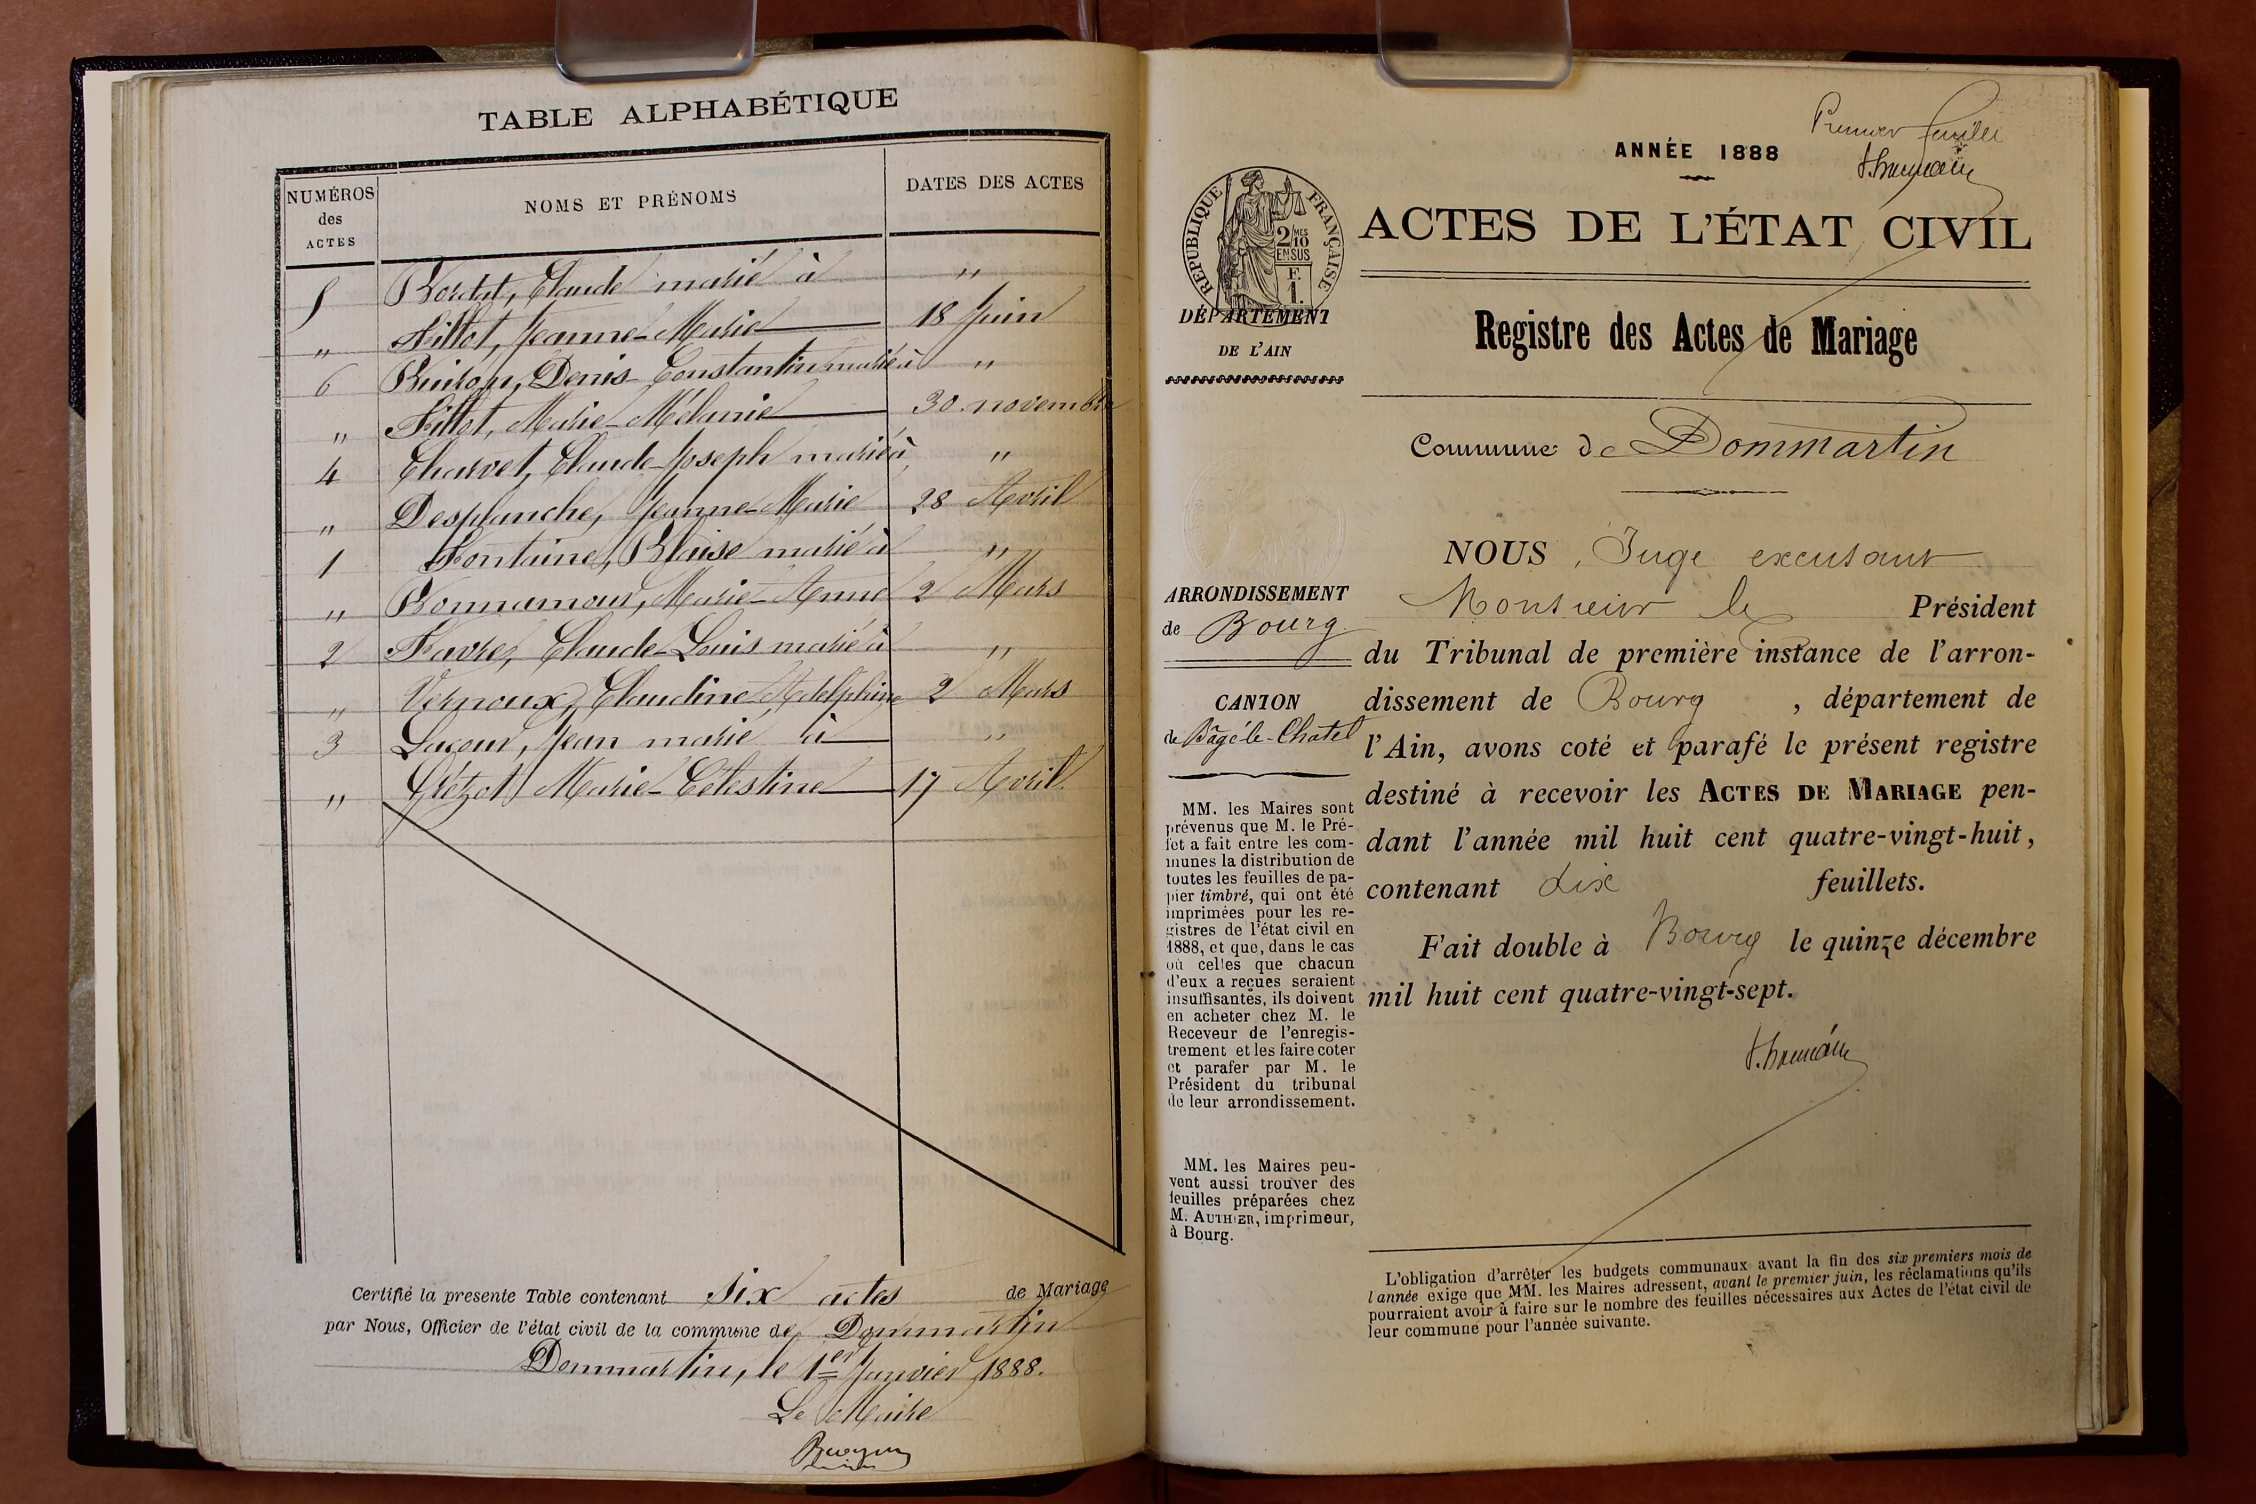 TABLE ALPHABÉTIQUE
NUMÉROS des ACTES
NOMS ET PRÉNOMS
DATES DES ACTES
5 Bordat, Claude marié à "
" Fillot, Jeanne-Marie 18 Juin
6 Denis Constantin marié à "
" Fillot, Marie-Mélanie 30 novembre
4 Charvet, Claude-Joseph marié à "
" Desplanche, Jeanne-Marie 28 Avril
1 Fontaine, Blaise marié à "
" Bonnamour, Marie-Anne 2 Mars
2 Favre, Claude-Louis marié à "
" Vernoux, Claudine-Adelphine 2 Mars
3 Lacour, Jean marié à "
" Marie-Célestine 17 Avril
Certifié la presente Table contenant six actes de Mariage
par Nous, Officier de l'état civil de la commune de Dommartin
Dommartin, le 1er Janvier 1888.
Le Maire
Premier feuillet
ANNÉE 1888
RÉPUBLIQUE FRANÇAISE
2/10 MES
EN SUS
F.
1.
ACTES DE L'ÉTAT CIVIL
DÉPARTEMENT
DE L'AIN
Registre des Actes de Mariage
Commune de Dommartin
ARRONDISSEMENT
de Bourg
CANTON
de Bâgé-le-Chatel
MM. les Maires sont
prévenus que M. le Pré-
fet a fait entre les com-
munes la distribution de
toutes les feuilles de pa-
pier timbré, qui ont été
imprimées pour les re-
gistres de l'état civil en
1888, et que, dans le cas
où celles que chacun
d'eux a reçues seraient
insuffisantes, ils doivent
en acheter chez M. le
Receveur de l'enregis-
trement et les faire coter
et parafer par M. le
Président du tribunal
de leur arrondissement.
MM. les Maires peu-
vent aussi trouver des
feuilles préparées chez
M. AUTHIER, imprimeur,
à Bourg.
NOUS, Juge excusant
Monsieur le Président
du Tribunal de première instance de l'arron-
dissement de Bourg, département de
l'Ain, avons coté et parafé le présent registre
destiné à recevoir les ACTES DE MARIAGE pen-
dant l'année mil huit cent quatre-vingt-huit,
contenant dix feuillets.
Fait double à Bourg le quinze décembre
mil huit cent quatre-vingt-sept.
L'obligation d'arrêter les budgets communaux avant la fin des six premiers mois de
l'année exige que MM. les Maires adressent, avant le premier juin, les réclamations qu'ils
pourraient avoir à faire sur le nombre des feuilles nécessaires aux Actes de l'état civil de
leur commune pour l'année suivante.